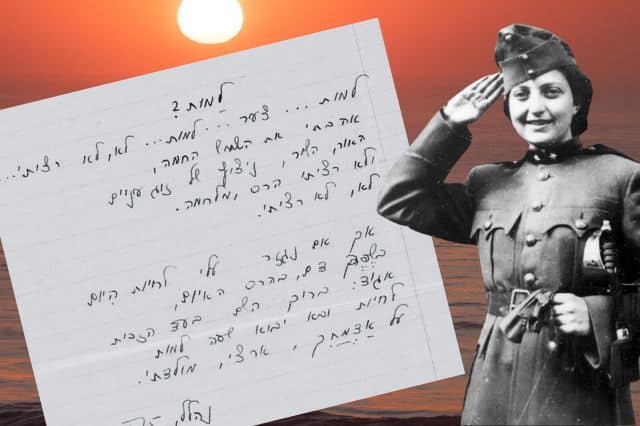 למות?
למות... צעיר... למות... לא, לא רציתי...
אהבתי את השמש החמה,
האור, השיר, ניצוץ של זוג עיניים
ולא רציתי הרס ומלחמה.
לא, לא רציתי.
אך אם נגזר עלי לחיות היום
בשפך דם, בהרס האיום,
אגיד: ברוך השם בעד הזכות
לחיות ובא יבוא שעה למות
על אדמתך, ארצי, מולדתי.
נהלל,